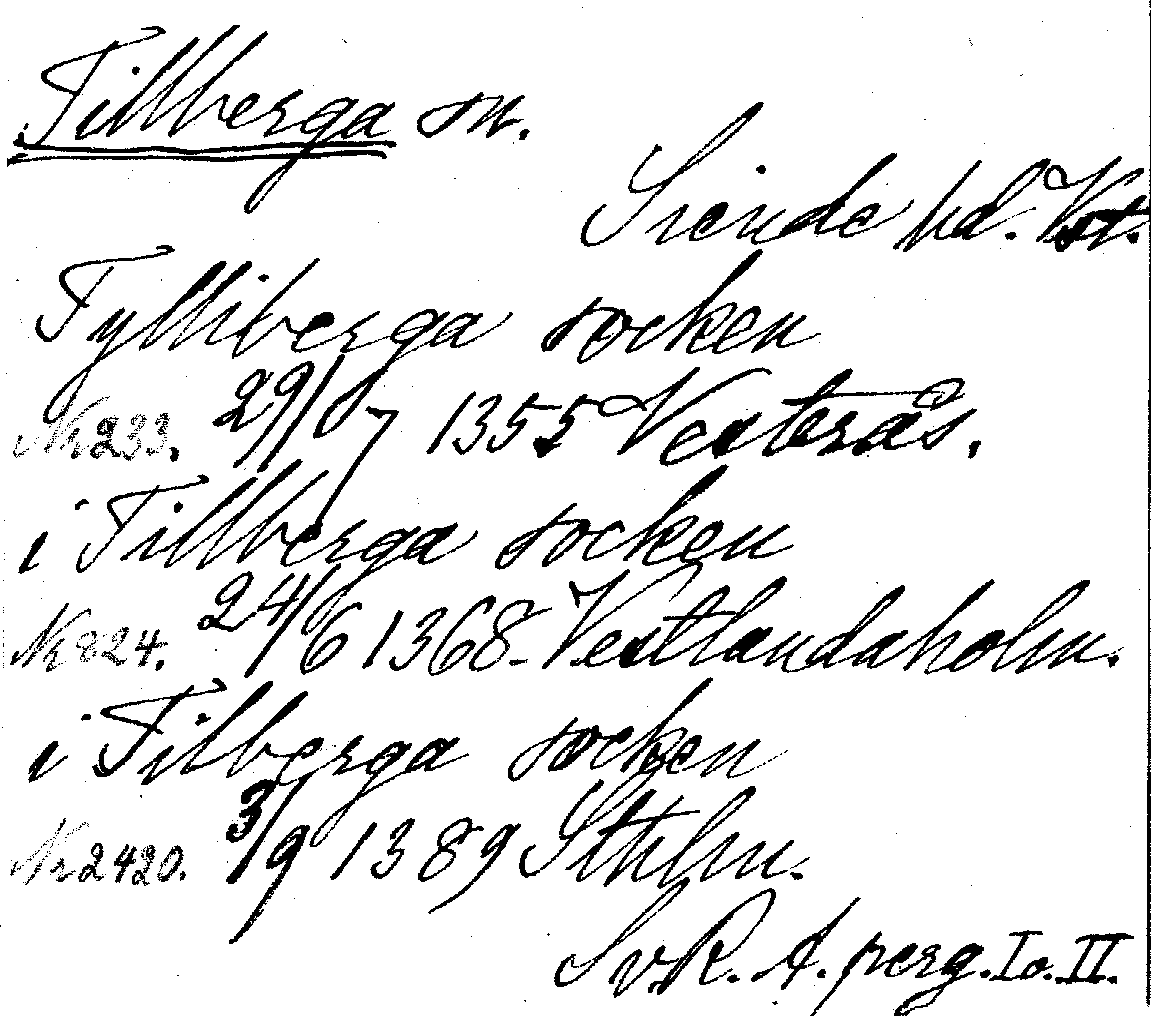 Tillberga sn.
Siende hd. Vst.
Tylliberga socken
Nr 233. 29/7 1355 Vesterås.
i Tillberga socken
Nr 824. 24/6 1368. Vestlandaholm.
i Tilberga socken
Nr 2420. 3/9 1389 Sthlm.
Sv. R. A. perg. I o. II.